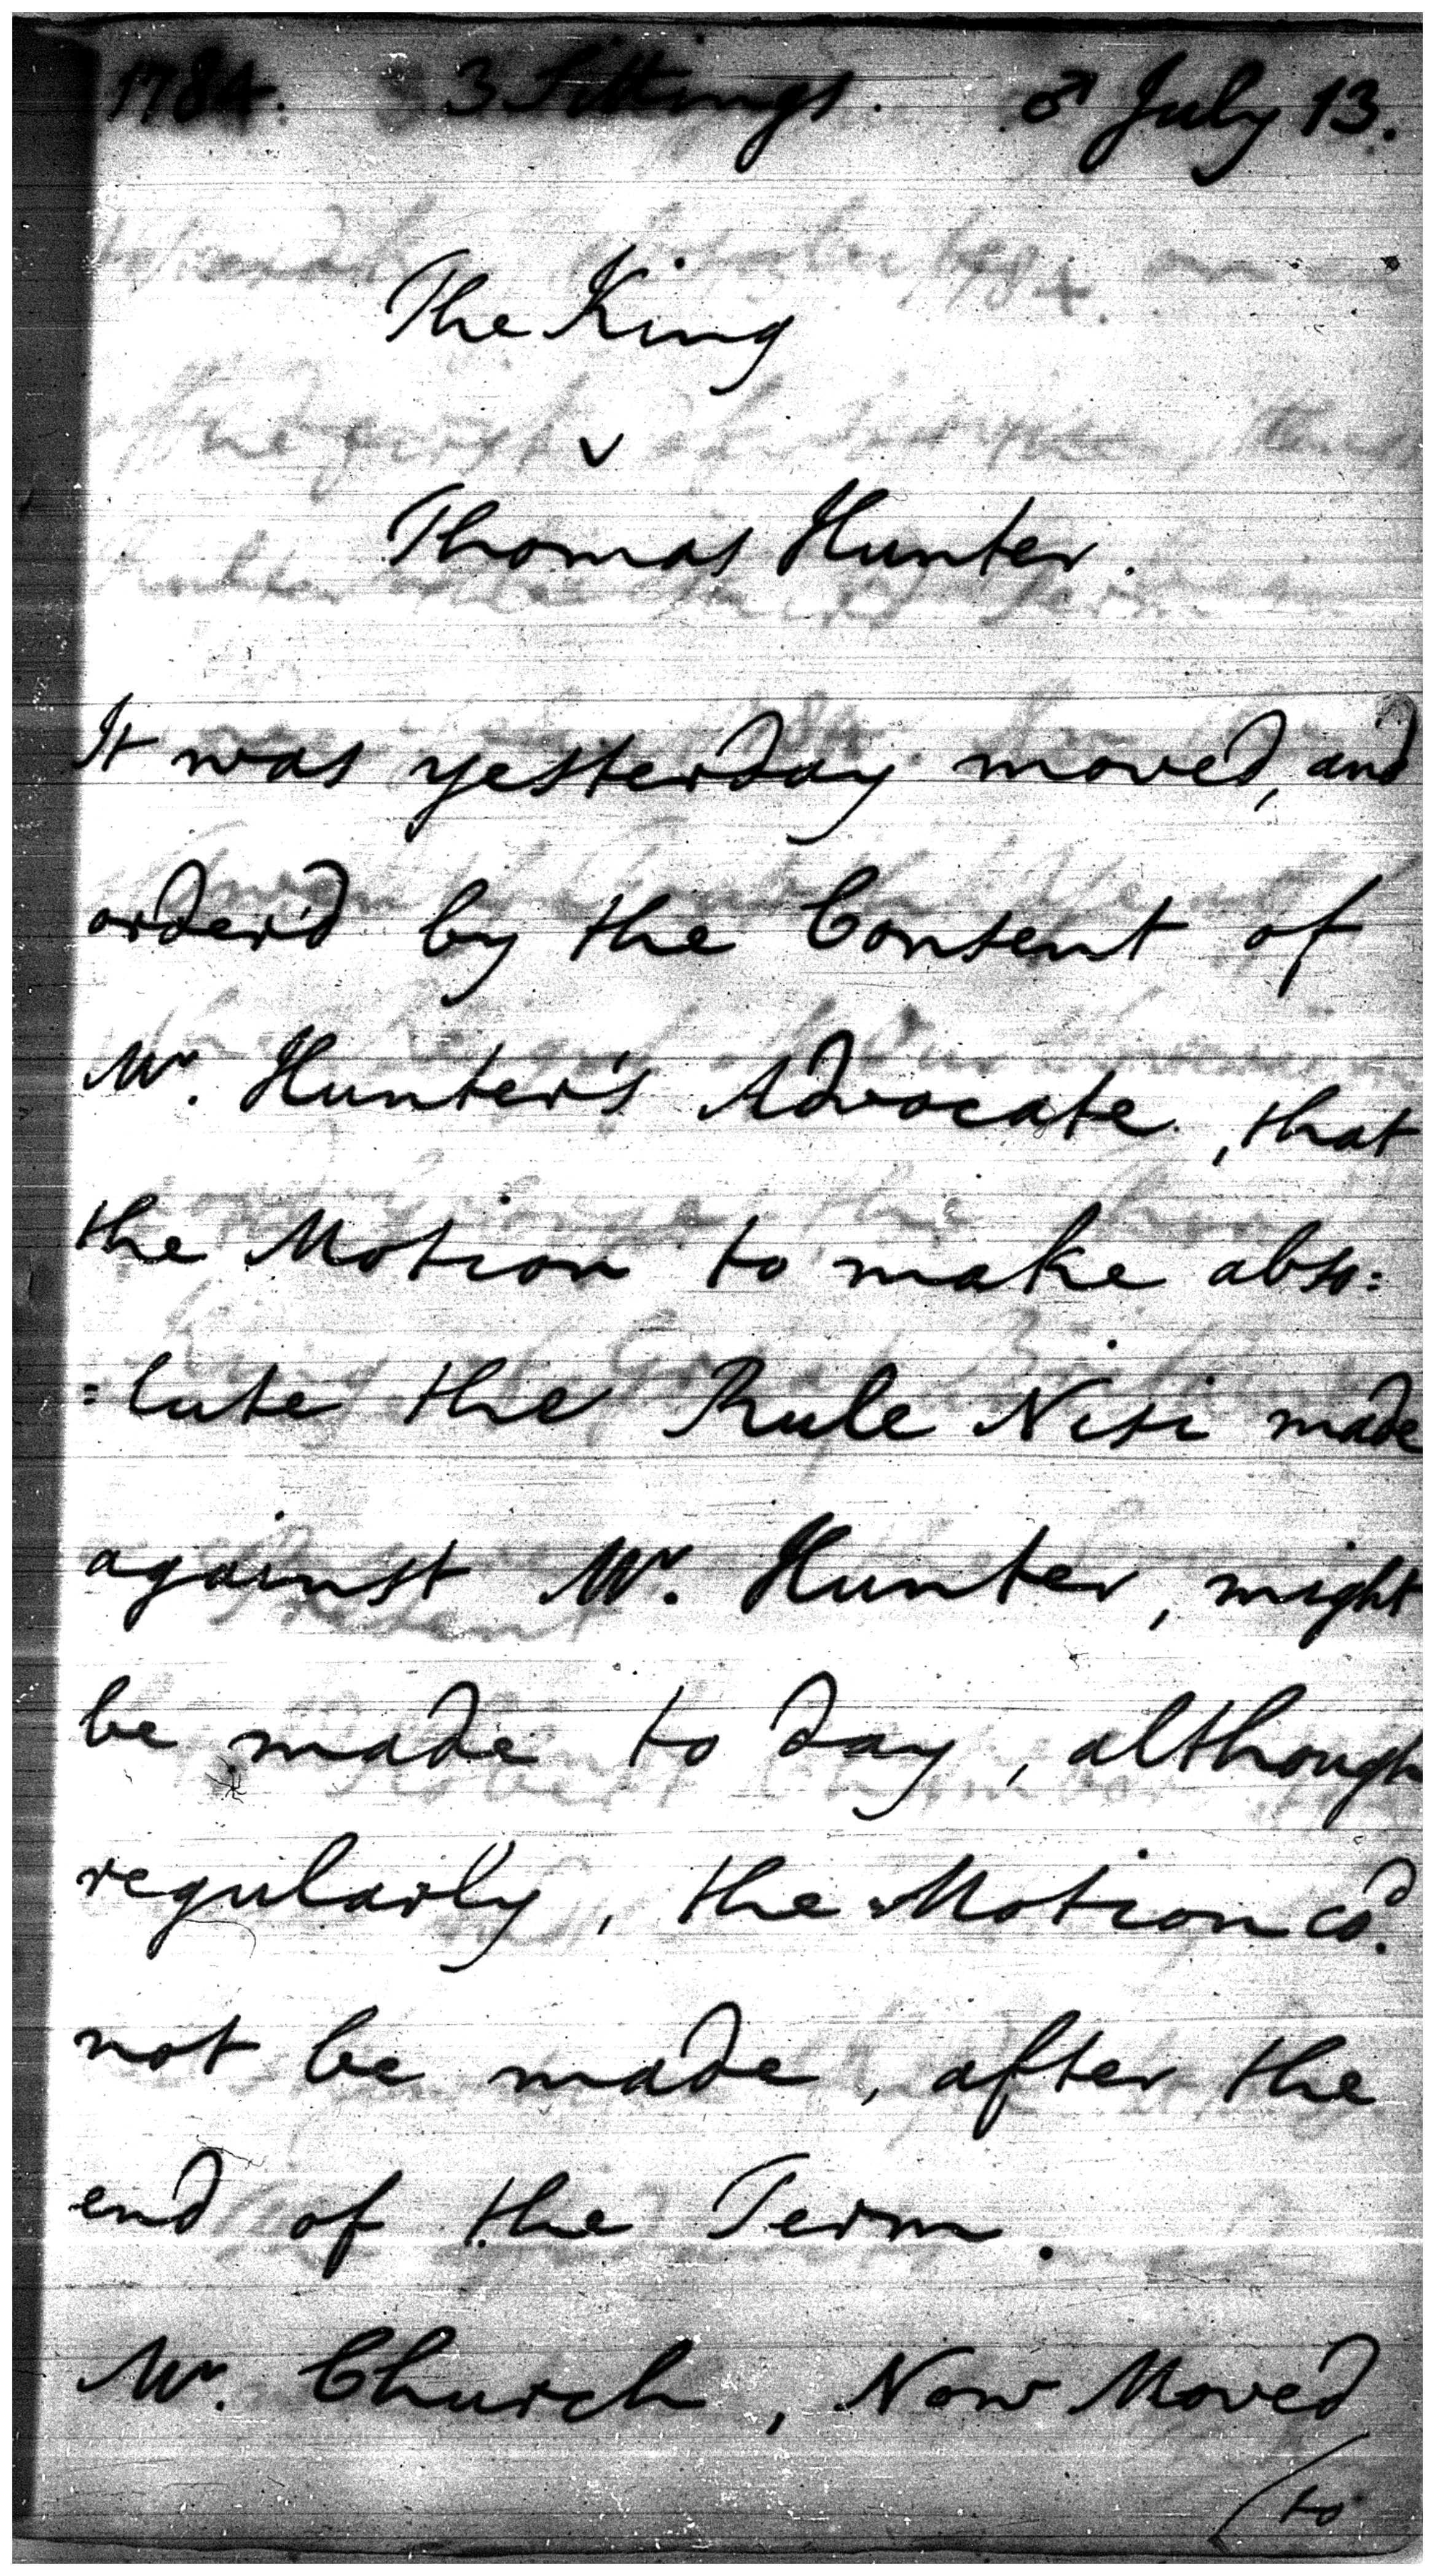 1784. 3 Sittings. ♂ July 13.
The King
v
Thomas Hunter.
It was yesterday moved, and
order'd by the Consent of
Mr. Hunter's Advocate, that
the Motion to make abso:
:lute the Rule Nisi made
against Mr. Hunter, might
be made to day, although
regularly, the Motion cd.
not be made, after the
end of the Term.
Mr. Church, Now Moved
(to